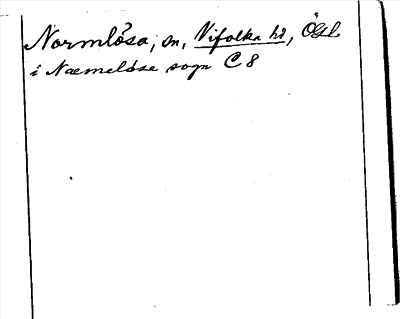 Normlösa, sn, Vifolka hd, Ögl.
i Næmeløse sogn C 8